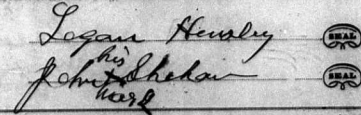 Logan Hensley SEAL
his
John X Shehan SEAL
mark